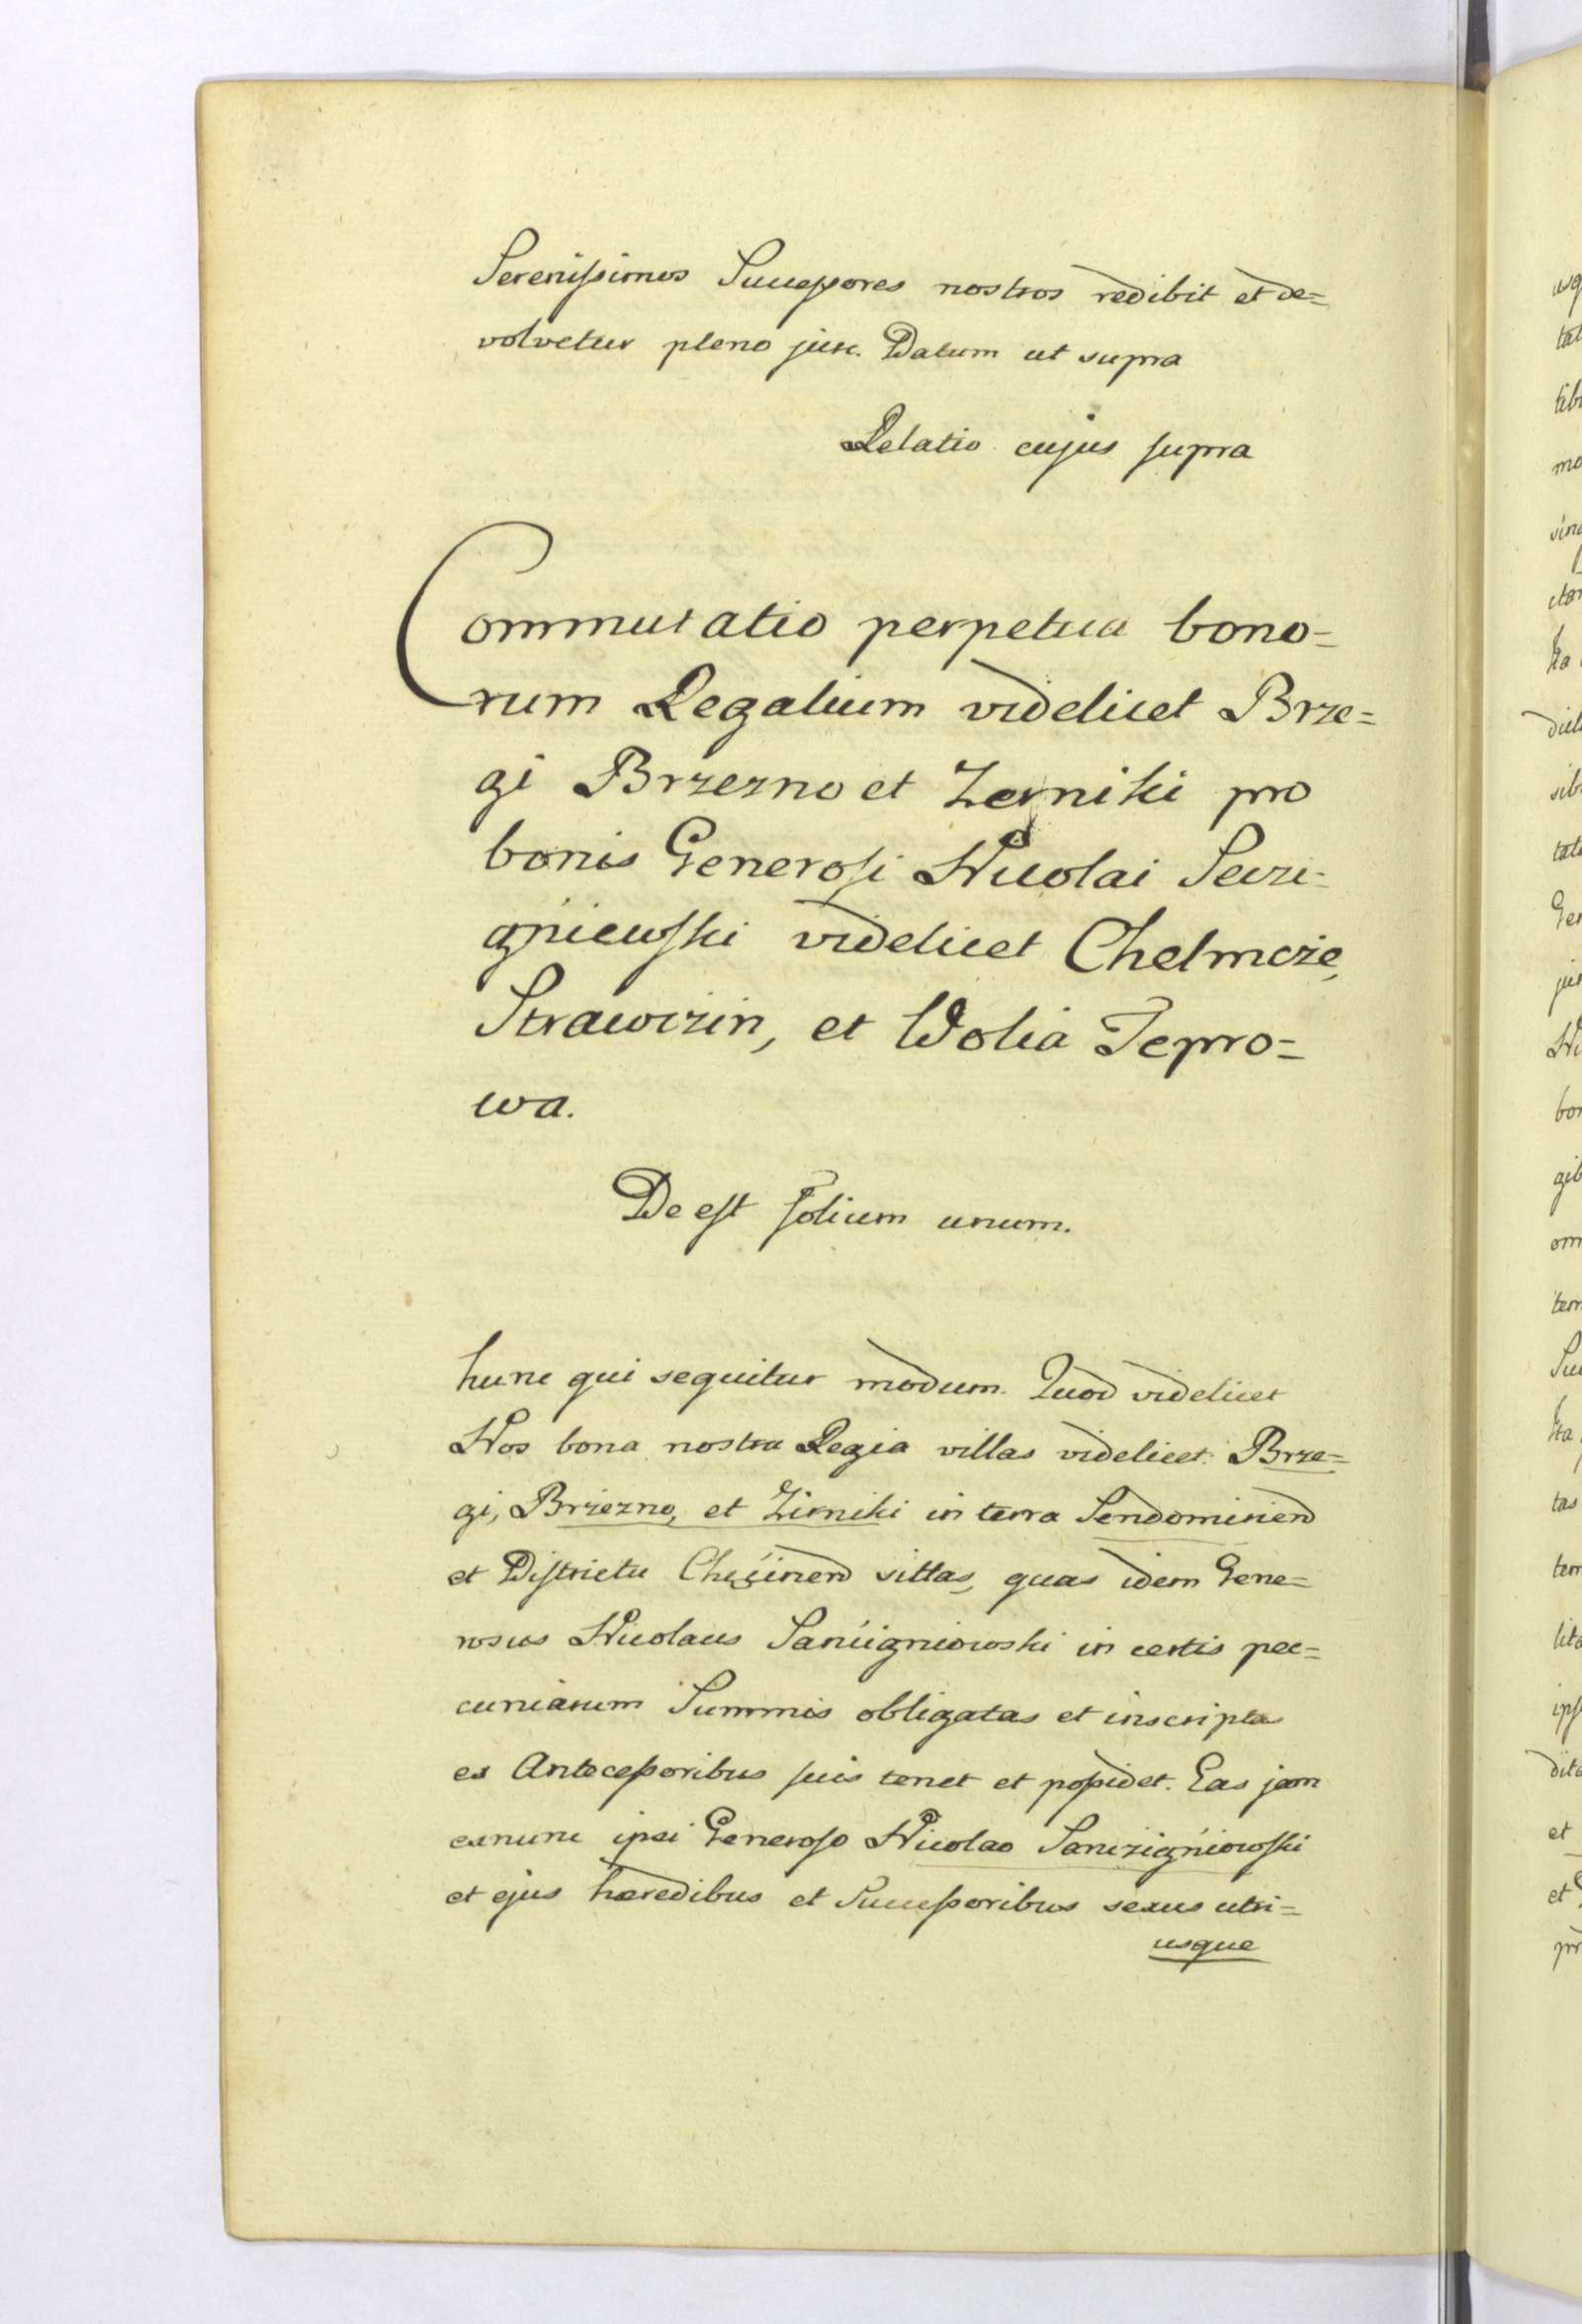 Serenissimos Successores nostros redibit et de=
volvetur pleno jure. Datum ut supra
Relatio cujus supra
Commutatio perpetua bono=
rum Regalium videlicet Brze=
gi Brzezno et Zerniki pro
bonis Generosi Nicolai Secri=
gniewski videlicet Chelmcze,
Strawczin, et Wolia Jepro=
wa.
De est folium unum.
hunc qui sequitur modum. Quod videlicet
Nos bona nostra Regia villas videlicet: Brze=
gi, Brzezno, et Zirniki in terra Sendomiriend
et Districtu Chęcinend villas, quas idem Gene=
rosus Nicolaus Sancigniowski in certis pec=
cuniarum Summis obligatas et inscriptas
ex Antecessoribus suis tenet et possidet. Eas jam
exnunc ipsi Generoso Nicolao Sanczigniowski
et ejus hæredibus et Successoribus sexus utri=
usque